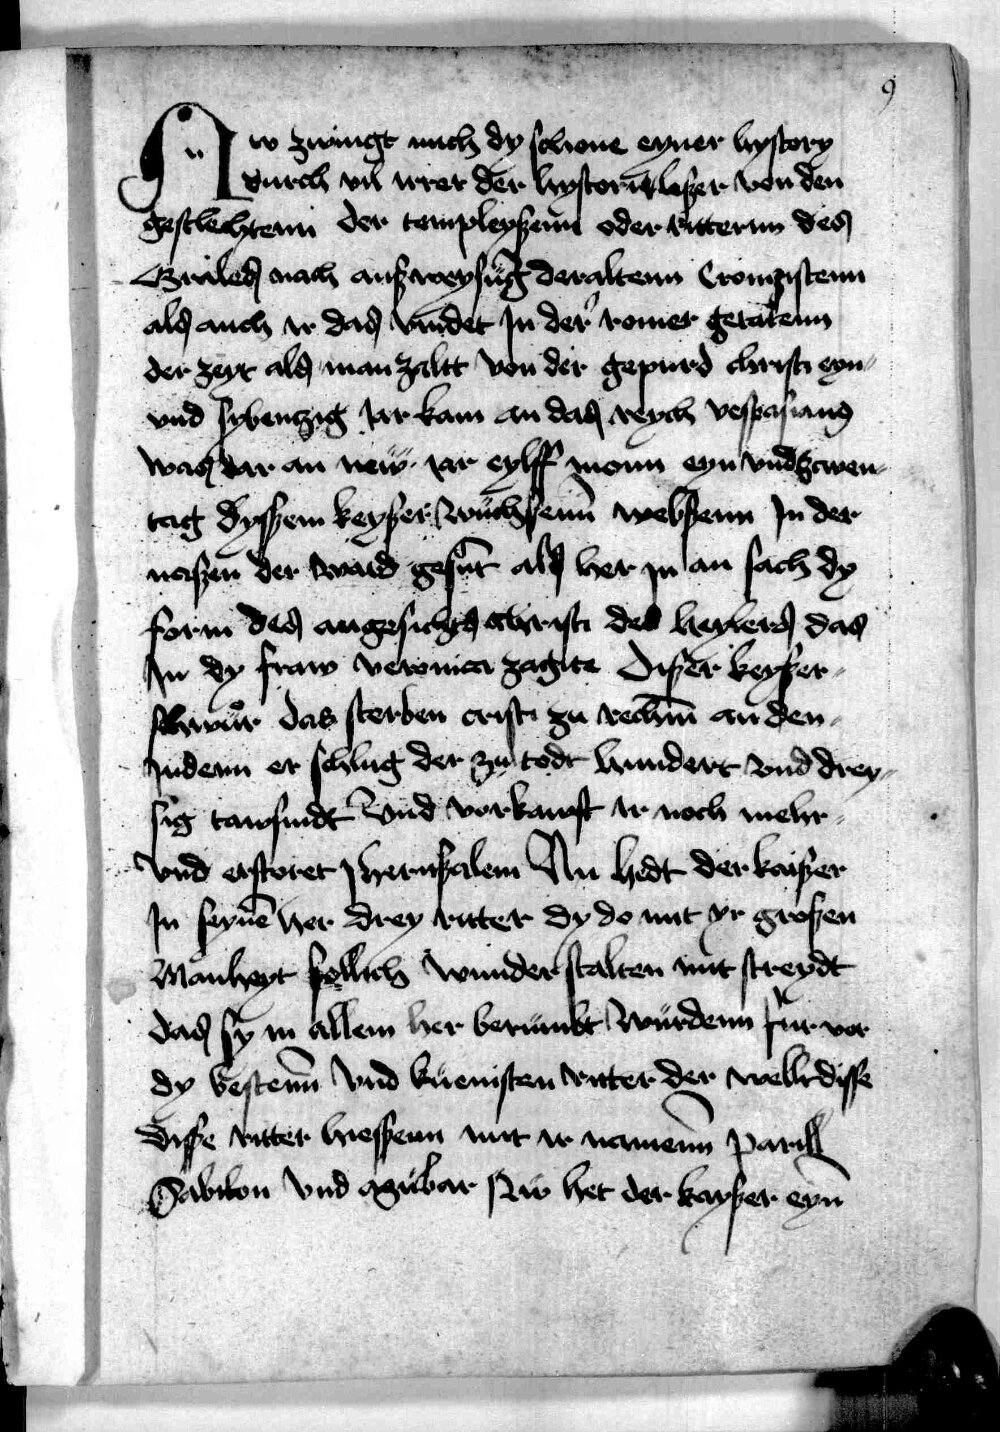 9
Nw zwingt mich dy schone eyner hystory
durch vil irrer der hystorij leßer von den
geslechtenn der templeyßenn oder ritternn des
Grales nach außweysūg der altenn Cronigistenn
als auch ir das vindet Jn der romer getatenn
der zeyt als man zaltt von der gepurd christi eyn
vnd sybentzig Jar kam an das reych vespasians
was dar an new Jar eylff monn eyn vnd zwen
tzig dyßem keyßer wuchßenn webßenn Jn der
naßen der ward gesūt als her jn an sach dy
form des angesichts christi des heylers das
Jn dy fraw veronica zagite Dißer keyßer
schwur das sterben cristi zu rechnn an den
Judenn er schlug der zu todt hundert vnd drey
sig tawsundt Vnd vorkauft ir noch mehr
Vnd erstoret Jherusalem Nu hedt der kaißer
Jn seynē her drey ritter dy do mit yr großen
Manheyt sollich wunder stalten mit streydt
das sy in allem her berumbt wurdenn fur vor
dy bestenn vnd kuenisten ritter der wellt disse
Disse ritter hiessenn mit ir namenn Parill
Sabilon vnd Azubar Nw het der kayßer eyn